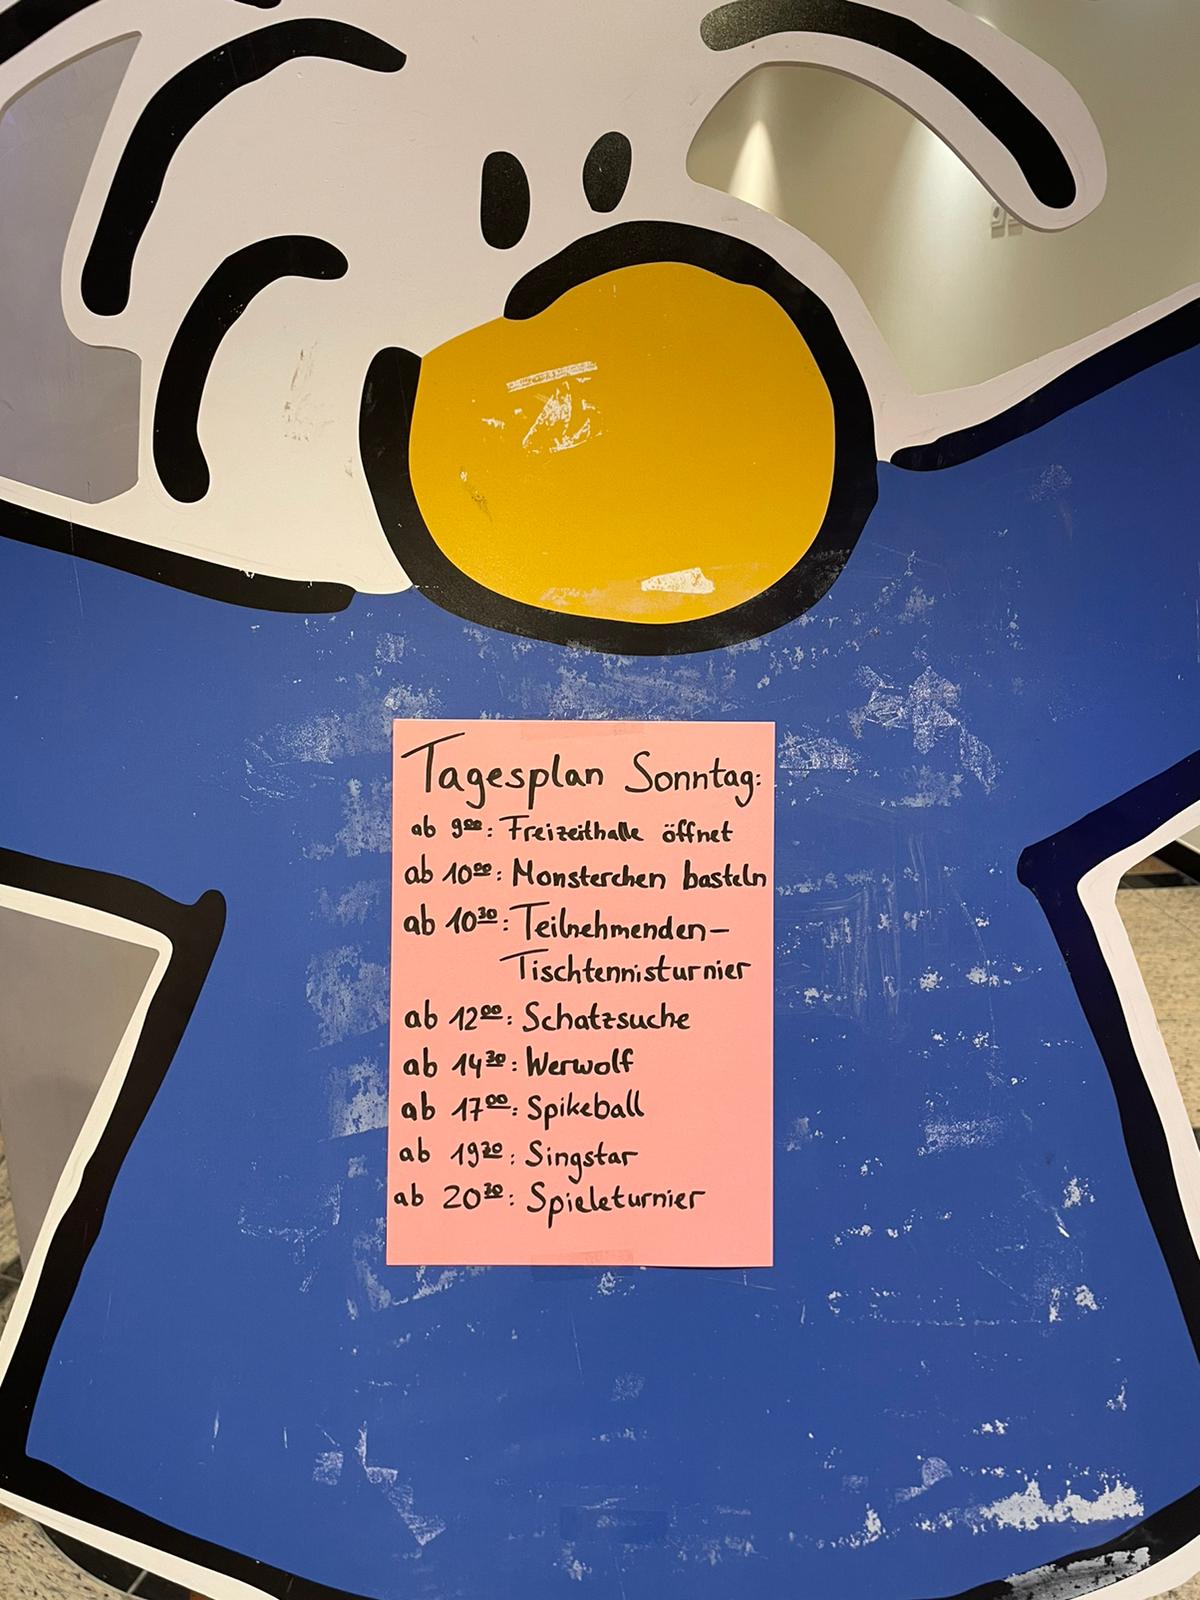 Tagesplan Sonntag:
ab 9⁰⁰: Freizeithalle öffnet
ab 10⁰⁰: Monsterchen basteln
ab 10³⁰: Teilnehmenden-
Tischtennisturnier
ab 12⁰⁰: Schatzsuche
ab 14³⁰: Werwolf
ab 17⁰⁰: Spikeball
ab 19³⁰: Singstar
ab 20³⁰: Spieleturnier